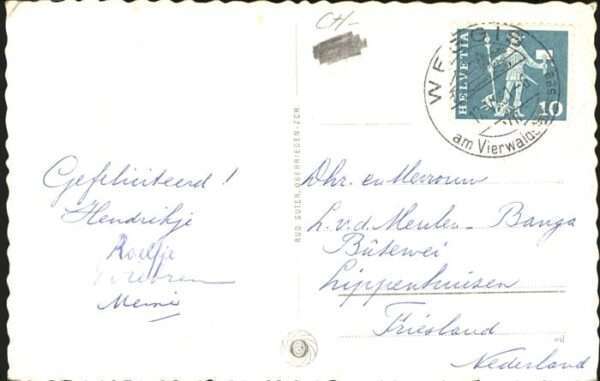 CH-
WEGGIS
am Vierwaldst
HELVETIA
10
RUD. SUTER, OBERRIEDEN-ZCH.
Gefeliciteerd!
Hendrikje
Roelfje
Meini
Dhr. en Mevrouw
L. v. d. Meulen-Banga
Bûtewei
Lippenhuizen
Friesland
Nederland